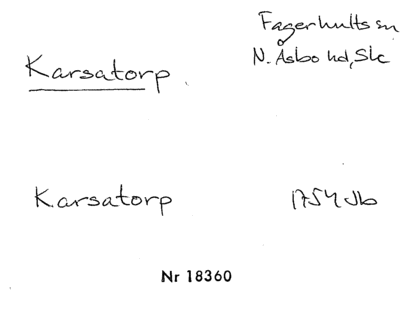 Fagerhults sn
Karsatorp
N. Åsbo hd, Slc
Karsatorp
1754 Jb
Nr 18360